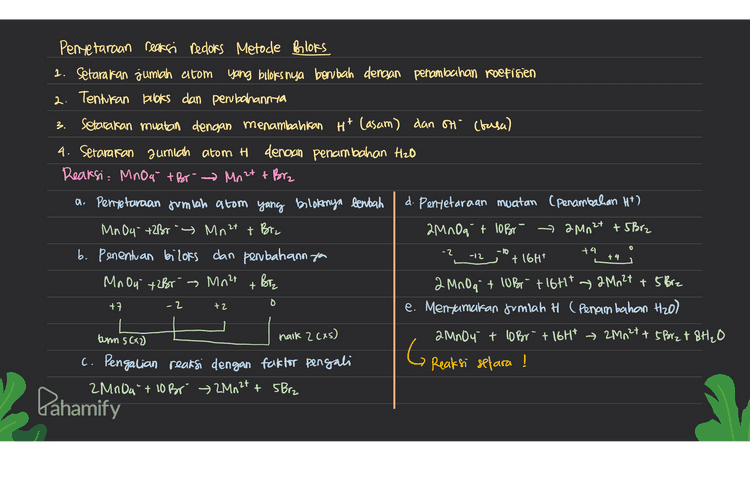 Penyetaraan reaksi redoks Metode Biloks
1. Setarakan jumlah atom yang biloksnya berubah dengan penambahan koefisien
2. Tentukan biloks dan perubahannya
3. Setarakan muatan dengan menambahkan H⁺ (asam) dan OH⁻ (basa)
4. Setarakan jumlah atom H dengan penambahan H₂O
Reaksi : MnO₄⁻ + Br⁻ → Mn²⁺ + Br₂
a. Penyetaraan jumlah atom yang biloksnya berubah
MnO₄⁻ + 2Br⁻ → Mn²⁺ + Br₂
b. Penentuan biloks dan perubahannya
MnO₄⁻ + 2Br⁻ → Mn²⁺ + Br₂
+7 -2 +2 0
turun 5 (x2) naik 2 (x5)
c. Pengalian reaksi dengan faktor pengali
2MnO₄⁻ + 10Br⁻ → 2Mn²⁺ + 5Br₂
d. Penyetaraan muatan (penambahan H⁺)
2MnO₄⁻ + 10Br⁻ → 2Mn²⁺ + 5Br₂
-2 -10 +4 0
-12 + 16H⁺ +4
2MnO₄⁻ + 10Br⁻ + 16H⁺ → 2Mn²⁺ + 5Br₂
e. Menyamakan jumlah H (penambahan H₂O)
2MnO₄⁻ + 10Br⁻ + 16H⁺ → 2Mn²⁺ + 5Br₂ + 8H₂O
↳ Reaksi setara !
Pahamify